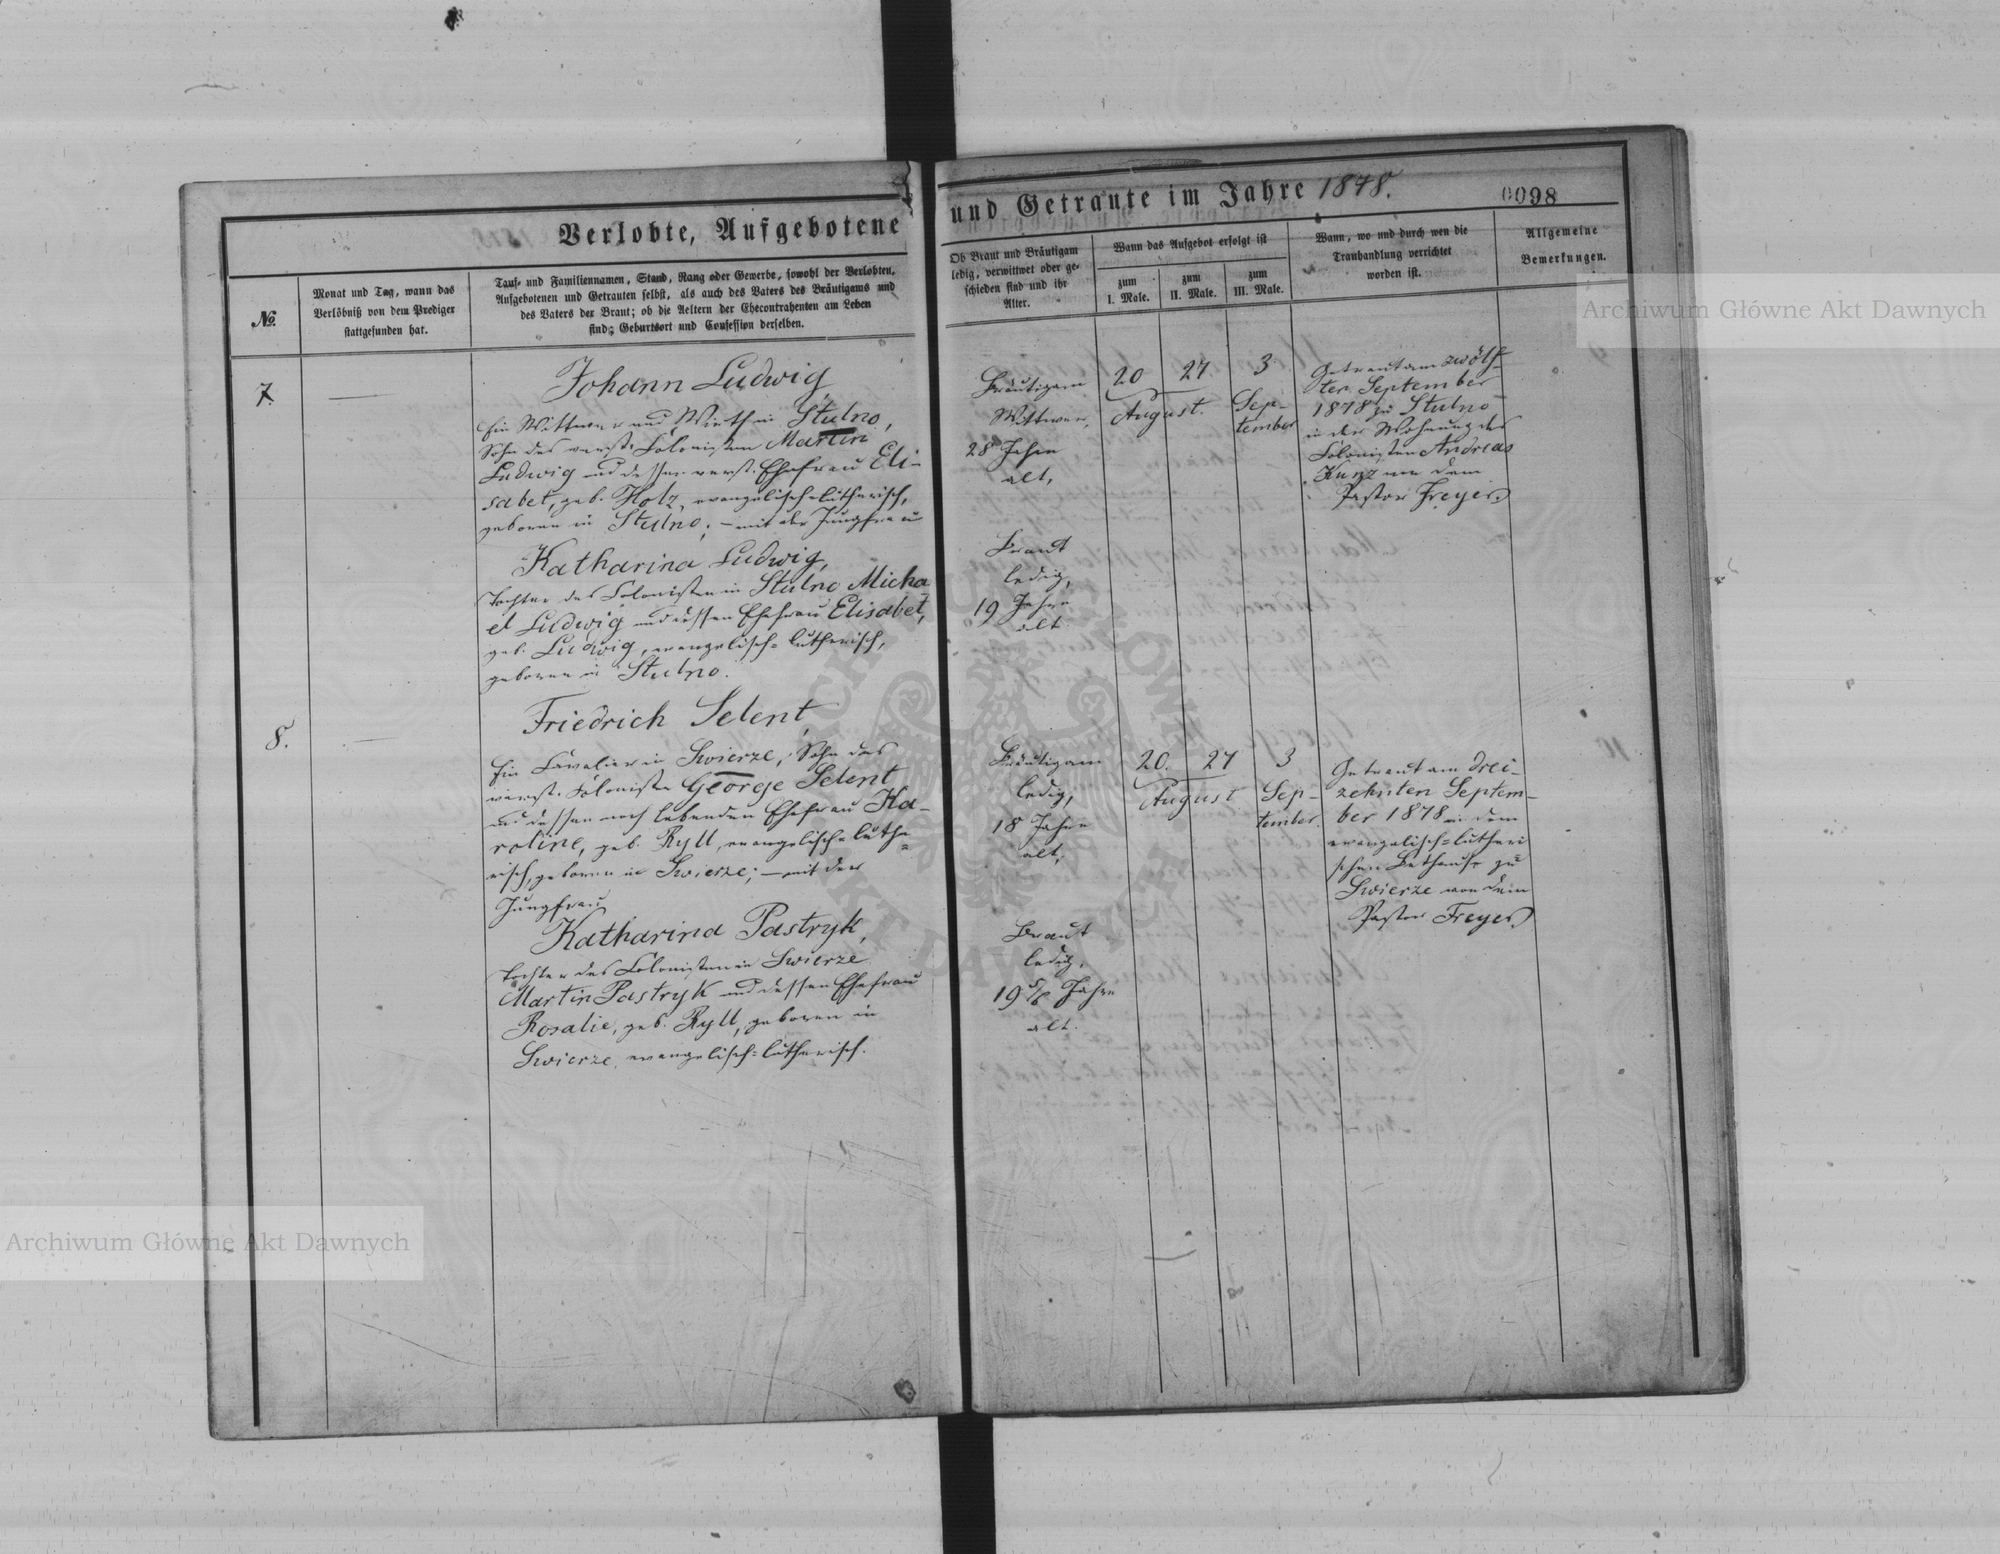 Verlobte, Aufgebotene
und Getraute im Jahre 1878.
0098
№.
Monat und Tag, wann das
Verlöbniß von dem Prediger
stattgefunden hat.
Tauf- und Familiennamen, Stand, Rang oder Gewerbe, sowohl der Verlobten,
Aufgebotenen und Getrauten selbst, als auch des Vaters des Bräutigams und
des Vaters der Braut; ob die Aeltern der Ehecontrahenten am Leben
sind; Geburtsort und Confession derselben.
Ob Braut und Bräutigam
ledig, verwittwet oder ge-
schieden sind und ihr
Alter.
Wann das Aufgebot erfolgt ist
zum
I. Male.
zum
II. Male.
zum
III. Male.
Wann, wo und durch wen die
Trauhandlung verrichtet
worden ist.
Allgemeine
Bemerkungen.
7.
Johann Ludwig,
Ein Wittwer und Wirth in Stulno,
Sohn des verst. Colonisten Martin
Ludwig und dessen verst. Ehefrau Eli-
sabet, geb. Holz, evangelisch-lutherisch,
geboren in Stulno; – mit der Jungfrau
Katharina Ludwig,
Tochter des Colonisten in Stulno Micha
el Ludwig und dessen Ehefrau Elisabet,
geb. Ludwig, evangelisch-lutherisch,
geboren in Stulno.
Bräutigam
Wittwer,
28 Jahre
alt,
Braut
ledig,
19 Jahre
alt
20 27 3
August. Sep-
tember
Getraut am zwölf-
ten September
1878 zu Stulno
in der Wohnung des
Colonisten Andreas
Kunz von dem
Pastor Freyer
8.
Friedrich Selent,
Ein Cavalier in Swierze, Sohn des
verst. Colonisten George Selent
und dessen noch lebenden Ehefrau Ka-
roline, geb. Ryll, evangelisch-luthe-
risch, geboren in Swierze; – mit der
Jungfrau
Katharina Pastryk,
Tochter des Colonisten in Swierze
Martin Pastryk und dessen Ehefrau
Rosalie, geb. Ryll, geboren in
Swierze, evangelisch-lutherisch.
Bräutigam
ledig,
18 Jahre
alt,
Braut
ledig,
19 5/6 Jahre
alt.
20. 27 3
August Sep-
tember.
Getraut am drei-
zehnten Septem-
ber 1878 in dem
evangelisch-lutheri
schen Bethause zu
Swierze von dem
Pastor Freyer
Archiwum Główne Akt Dawnych
Archiwum Główne Akt Dawnych